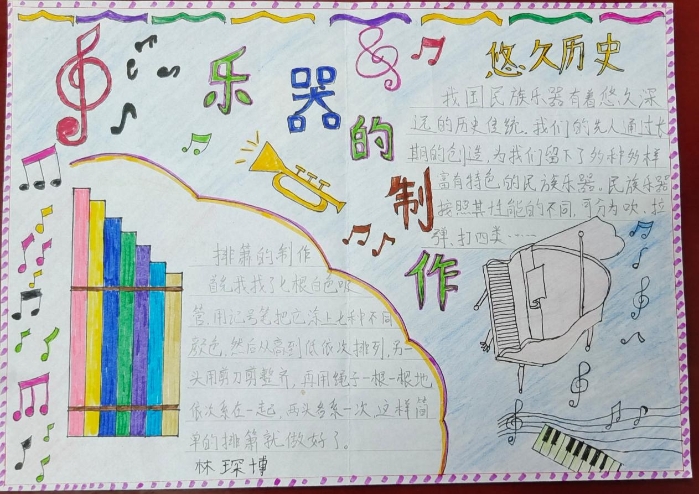 乐器的制作
悠久历史
我国民族乐器有着悠久深
远的历史传统。我们的先人通过长
期的创造,为我们留下了多种多样
富有特色的民族乐器。民族乐器
按照其性能的不同,可分为吹、拉
弹、打四类……
排箫的制作
首先我找了七根白色吸
管,用记号笔把它涂上七种不同
颜色,然后从高到低依次排列,另一
头用剪刀剪整齐,再用绳子一根一根地
依次系在一起,两头各系一次,这样简
单的排箫就做好了。
林琛博